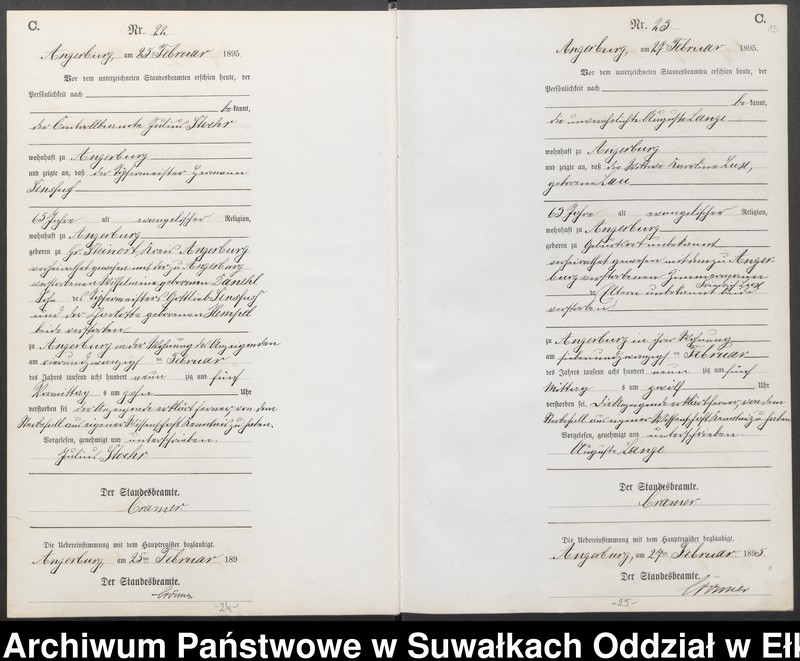 C.
Nr. 22
Angerburg, am 25 Februar 1895.
Vor dem unterzeichneten Standesbeamten erschien heute, der
Persönlichkeit nach
bekannt,
der Controllbeamte Julius Stoehr
wohnhaft zu Angerburg
und zeigte an, daß der Töpfermeister Hermann
65 Jahre alt evangelischer Religion,
wohnhaft zu Angerburg
geboren zu Gr. Steinort, Kreis Angerburg
verheirathet gewesen mit der zu Angerburg
verstorbenen Wilhelmine geborenen
Sohn des Töpfermeisters Gottlieb
und der Charlotte geborenen Hempel
beide verstorben
zu Angerburg in der Wohnung des Anzeigenden
am vierundzwanzigsten Februar
des Jahres tausend acht hundert neunzig und fünf
Vormittag s um zehn Uhr
verstorben sei. Der Anzeigende erklärt ferner, von dem
Sterbefall aus eigener Wissenschaft Kenntniß zu haben.
Vorgelesen, genehmigt und unterschrieben.
Julius Stoehr
Der Standesbeamte.
Cramer
Die Uebereinstimmung mit dem Hauptregister beglaubigt.
Angerburg, am 25ten Februar 189
Der Standesbeamte.
Cramer
-24-
C.
Nr. 23
Angerburg, am 27 Februar 1895.
Vor dem unterzeichneten Standesbeamten erschien heute, der
Persönlichkeit nach
bekannt,
die unverehelichte Auguste Lange
wohnhaft zu Angerburg
und zeigte an, daß die Wittwe Karoline Lux,
geborene Lau
63 Jahre alt evangelischer Religion,
wohnhaft zu Angerburg
geboren zu Geburtsort unbekannt
verheirathet gewesen mit dem zu Anger-
burg verstorbenen Zimmermann
Friedrich Lux
Eltern unbekannt beide
verstorben
zu Angerburg in ihrer Wohnung
am siebenundzwanzigsten Februar
des Jahres tausend acht hundert neunzig und fünf
Mittag s um zwölf Uhr
verstorben sei. Die Anzeigende erklärt ferner, von dem
Sterbefall aus eigener Wissenschaft Kenntniß zu haben
Vorgelesen, genehmigt und unterschrieben.
Auguste Lange
Der Standesbeamte.
Cramer
Die Uebereinstimmung mit dem Hauptregister beglaubigt.
Angerburg, am 27ten Februar 1895.
Der Standesbeamte.
Cramer
-25-
Archiwum Państwowe w Suwałkach Oddział w Ełk